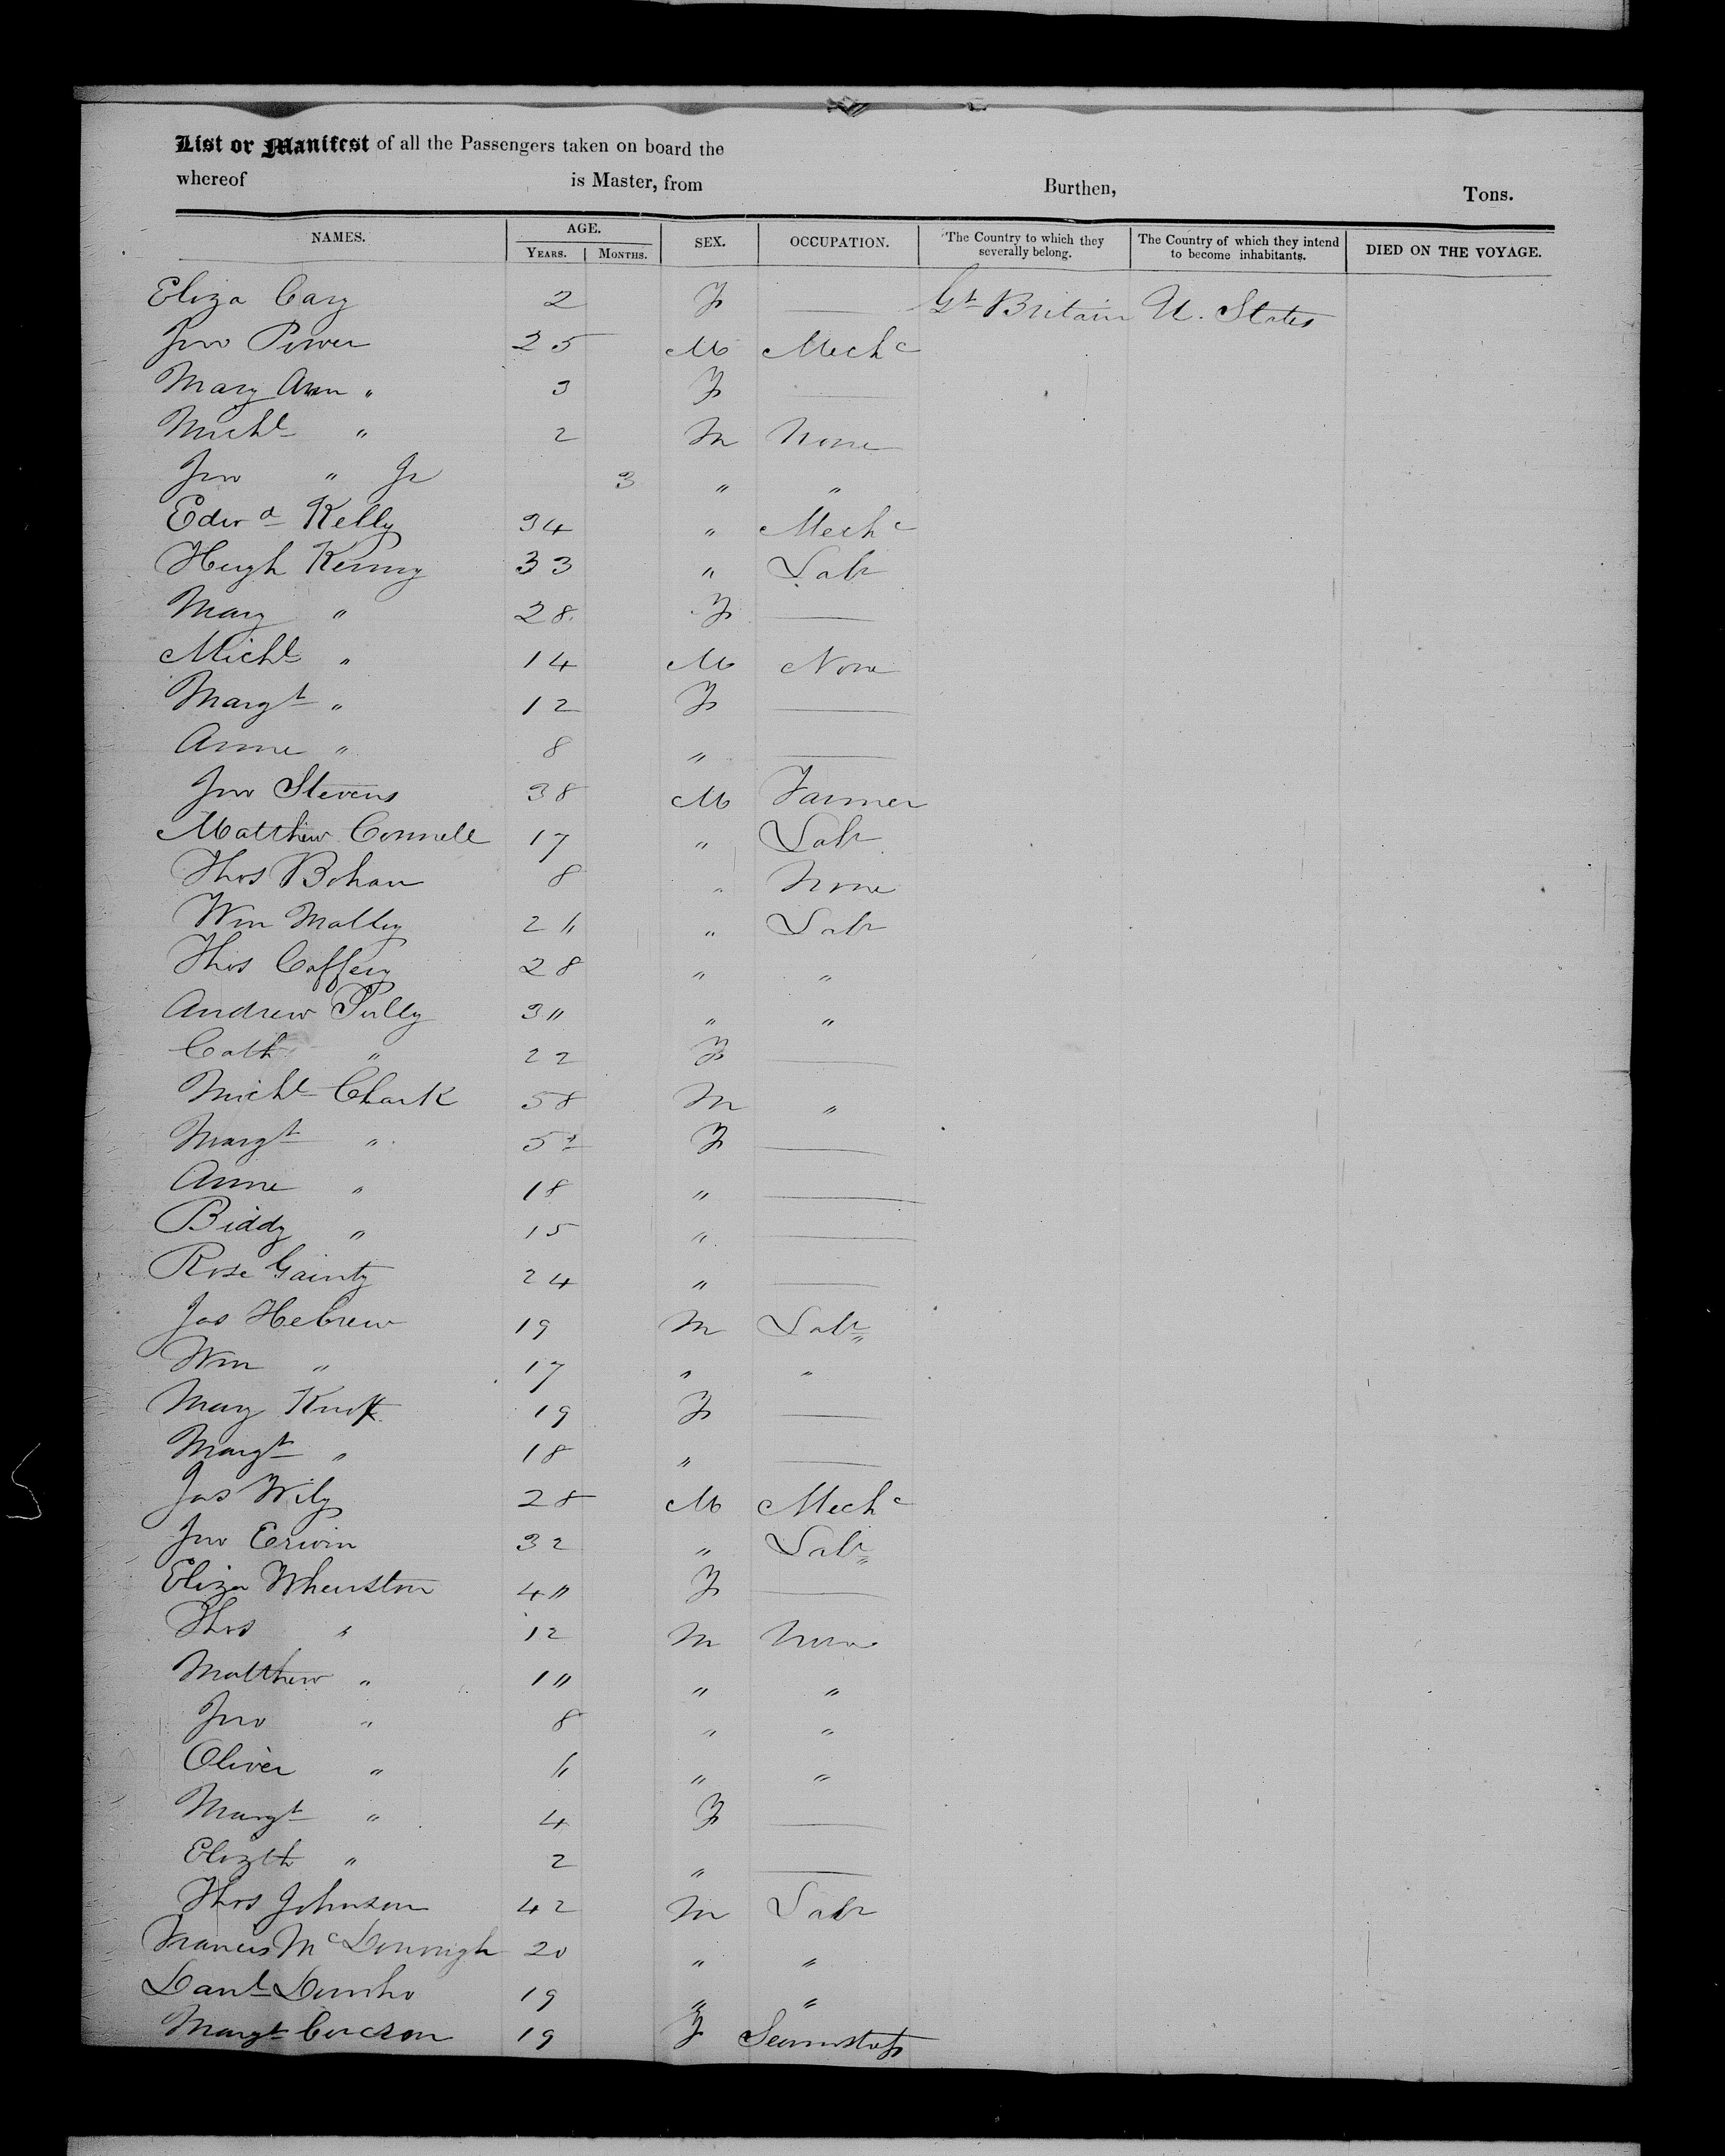 List or Manifest of all the Passengers taken on board the
whereof is Master, from Burthen, Tons.
NAMES. AGE. YEARS. MONTHS. SEX. OCCUPATION. The Country to which they severally belong. The Country of which they intend to become inhabitants. DIED ON THE VOYAGE.
Eliza Cary 2 F — Gt Britain U. States
Jno Power 25 M Mechc
Mary Ann " 3 F —
Michl " 2 M None
Jno " Jr 3 " "
Edwd Kelly 34 " Mechc
Hugh Kenny 33 " Labr
Mary " 28 F —
Michl " 14 M None
Margt " 12 F —
Anne " 8 " —
Jno Stevens 38 M Farmer
Matthew Connell 17 " Labr
Thos Bohan 8 " None
Wm Malley 2 " Labr
Thos Caffery 28 " "
Andrew Tully 3" " "
Cath " 22 F —
Michl Clark 58 M "
Margt " 5 F —
Anne " 18 " —
Biddy " 15 " —
Rose Gainty 24 " —
Jas Hebrew 19 M Labr
Wm " 17 " "
Mary 19 F —
Margt " 18 " —
Jas Wily 28 M Mechc
Jno Erwin 32 " Labr
Eliza Wheuston 4" F —
Thos " 12 M None
Matthew " 1" " "
Jno " 8 " "
Oliver " " "
Margt " 4 F —
Elizth " 2 " —
Thos Johnson 42 M Labr
Francis McDonnigh 20 " "
Danl 19 " "
Margt 19 F Seamstress